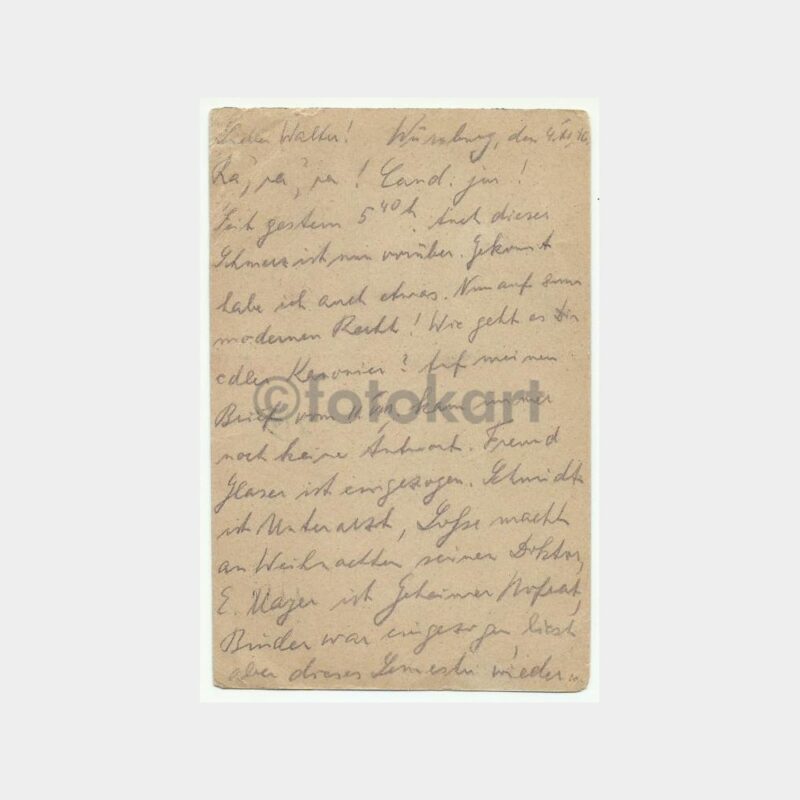 Lieber Walter! Würzburg, den 4. XI. 16.
Ra, ra, ra! Cand. jur!
Seit gestern 5 40 h. Auch dieser
Schmerz ist nun vorüber. Gekonnt
habe ich auch etwas. Nun auf zum
modernen Recht! Wie geht es Dir
edler Kanonier? Auf meinen
Brief vom kam immer
noch keine Antwort. Freund
Glaser ist eingezogen. Schmidt
ist Unterarzt, macht
an Weihnachten seinen Doktor,
E. Mayer ist Geheimer Hofrat,
Binder war eingezogen, liest
aber dieses Semester wieder.
©fotokart